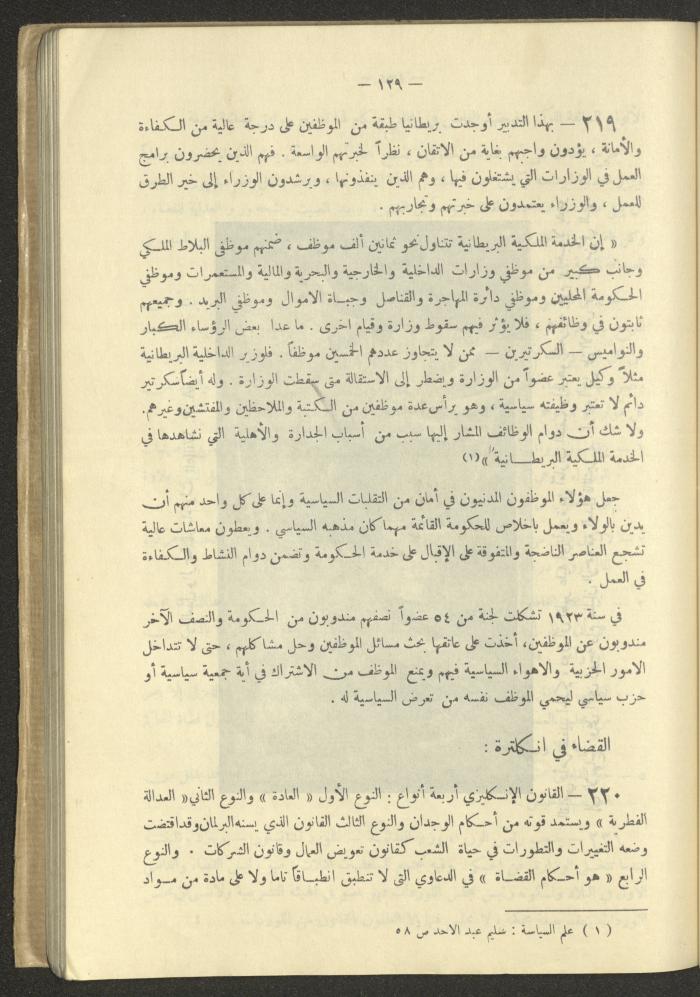 — ١٢٩ —
٢١٩ — بهذا التدبير أوجدت بريطانيا طبقة من الموظفين على درجة عالية من الكفاءة
والأمانة ، يؤدون واجبهم بغاية من الاتقان ، نظراً لخبرتهم الواسعة . فهم الذين يحضرون برامج
العمل في الوزارات التي يشتغلون فيها ، وهم الذين ينفذونها ، ويرشدون الوزراء إلى خير الطرق
للعمل ، والوزراء يعتمدون على خبرتهم وتجاربهم .
« إن الخدمة الملكية البريطانية تتناول نحو ثمانين ألف موظف ، ضمنهم موظفي البلاط الملكي
وجانب كبير من موظفي وزارات الداخلية والخارجية والبحرية والمالية والمستعمرات وموظفي
الحكومة المحليين وموظفي دائرة المهاجرة والقناصل وجباة الاموال وموظفي البريد . وجميعهم
ثابتون في وظائفهم ، فلا يؤثر فيهم سقوط وزارة وقيام اخرى . ما عدا بعض الرؤساء الكبار
والنواميس — السكرتيرين — ممن لا يتجاوز عددهم الخمسين موظفاً . فلوزير الداخلية البريطانية
مثلاً وكيل يعتبر عضواً من الوزارة ويضطر إلى الاستقالة متى سقطت الوزارة . وله أيضاً سكرتير
دائم لا تعتبر وظيفته سياسية ، وهو يرأس عدة موظفين من الكتبة والملاحظين والمفتشين وغيرهم.
ولا شك أن دوام الوظائف المشار إليها سبب من أسباب الجدارة والأهلية التي نشاهدها في
الخدمة الملكية البريطانية »(١)
جعل هؤلاء الموظفون المدنيون في أمان من التقلبات السياسية وإنما على كل واحد منهم أن
يدين بالولاء ويعمل باخلاص للحكومة القائمة مهما كان مذهبه السياسي . ويعطون معاشات عالية
تشجع العناصر الناضجة والمتفوقة على الإقبال على خدمة الحكومة وتضمن دوام النشاط والكفاءة
في العمل .
في سنة ١٩٢٣ تشكلت لجنة من ٥٤ عضواً نصفهم مندوبون من الحكومة والنصف الآخر
مندوبون عن الموظفين، أخذت على عاتقها بحث مسائل الموظفين وحل مشاكلهم ، حتى لا تتداخل
الامور الحزبية والاهواء السياسية فيهم ويمنع الموظف من الاشتراك في أية جمعية سياسية أو
حزب سياسي ليحمي الموظف نفسه من تعرض السياسية له .
القضاء في انكلترة :
٢٢٠ — القانون الإنكليزي أربعة أنواع : النوع الأول « العادة » والنوع الثاني « العدالة
الفطرية » ويستمد قوته من أحكام الوجدان والنوع الثالث القانون الذي يسنه البرلمان وقد اقتضت
وضعه التغييرات والتطورات في حياة الشعب كقانون تعويض العمال وقانون الشركات . والنوع
الرابع « هو أحكام القضاة » في الدعاوي التي لا تنطبق انطباقاً تاما ولا على مادة من مواد
(١) علم السياسة : سليم عبد الاحد ص ٥٨